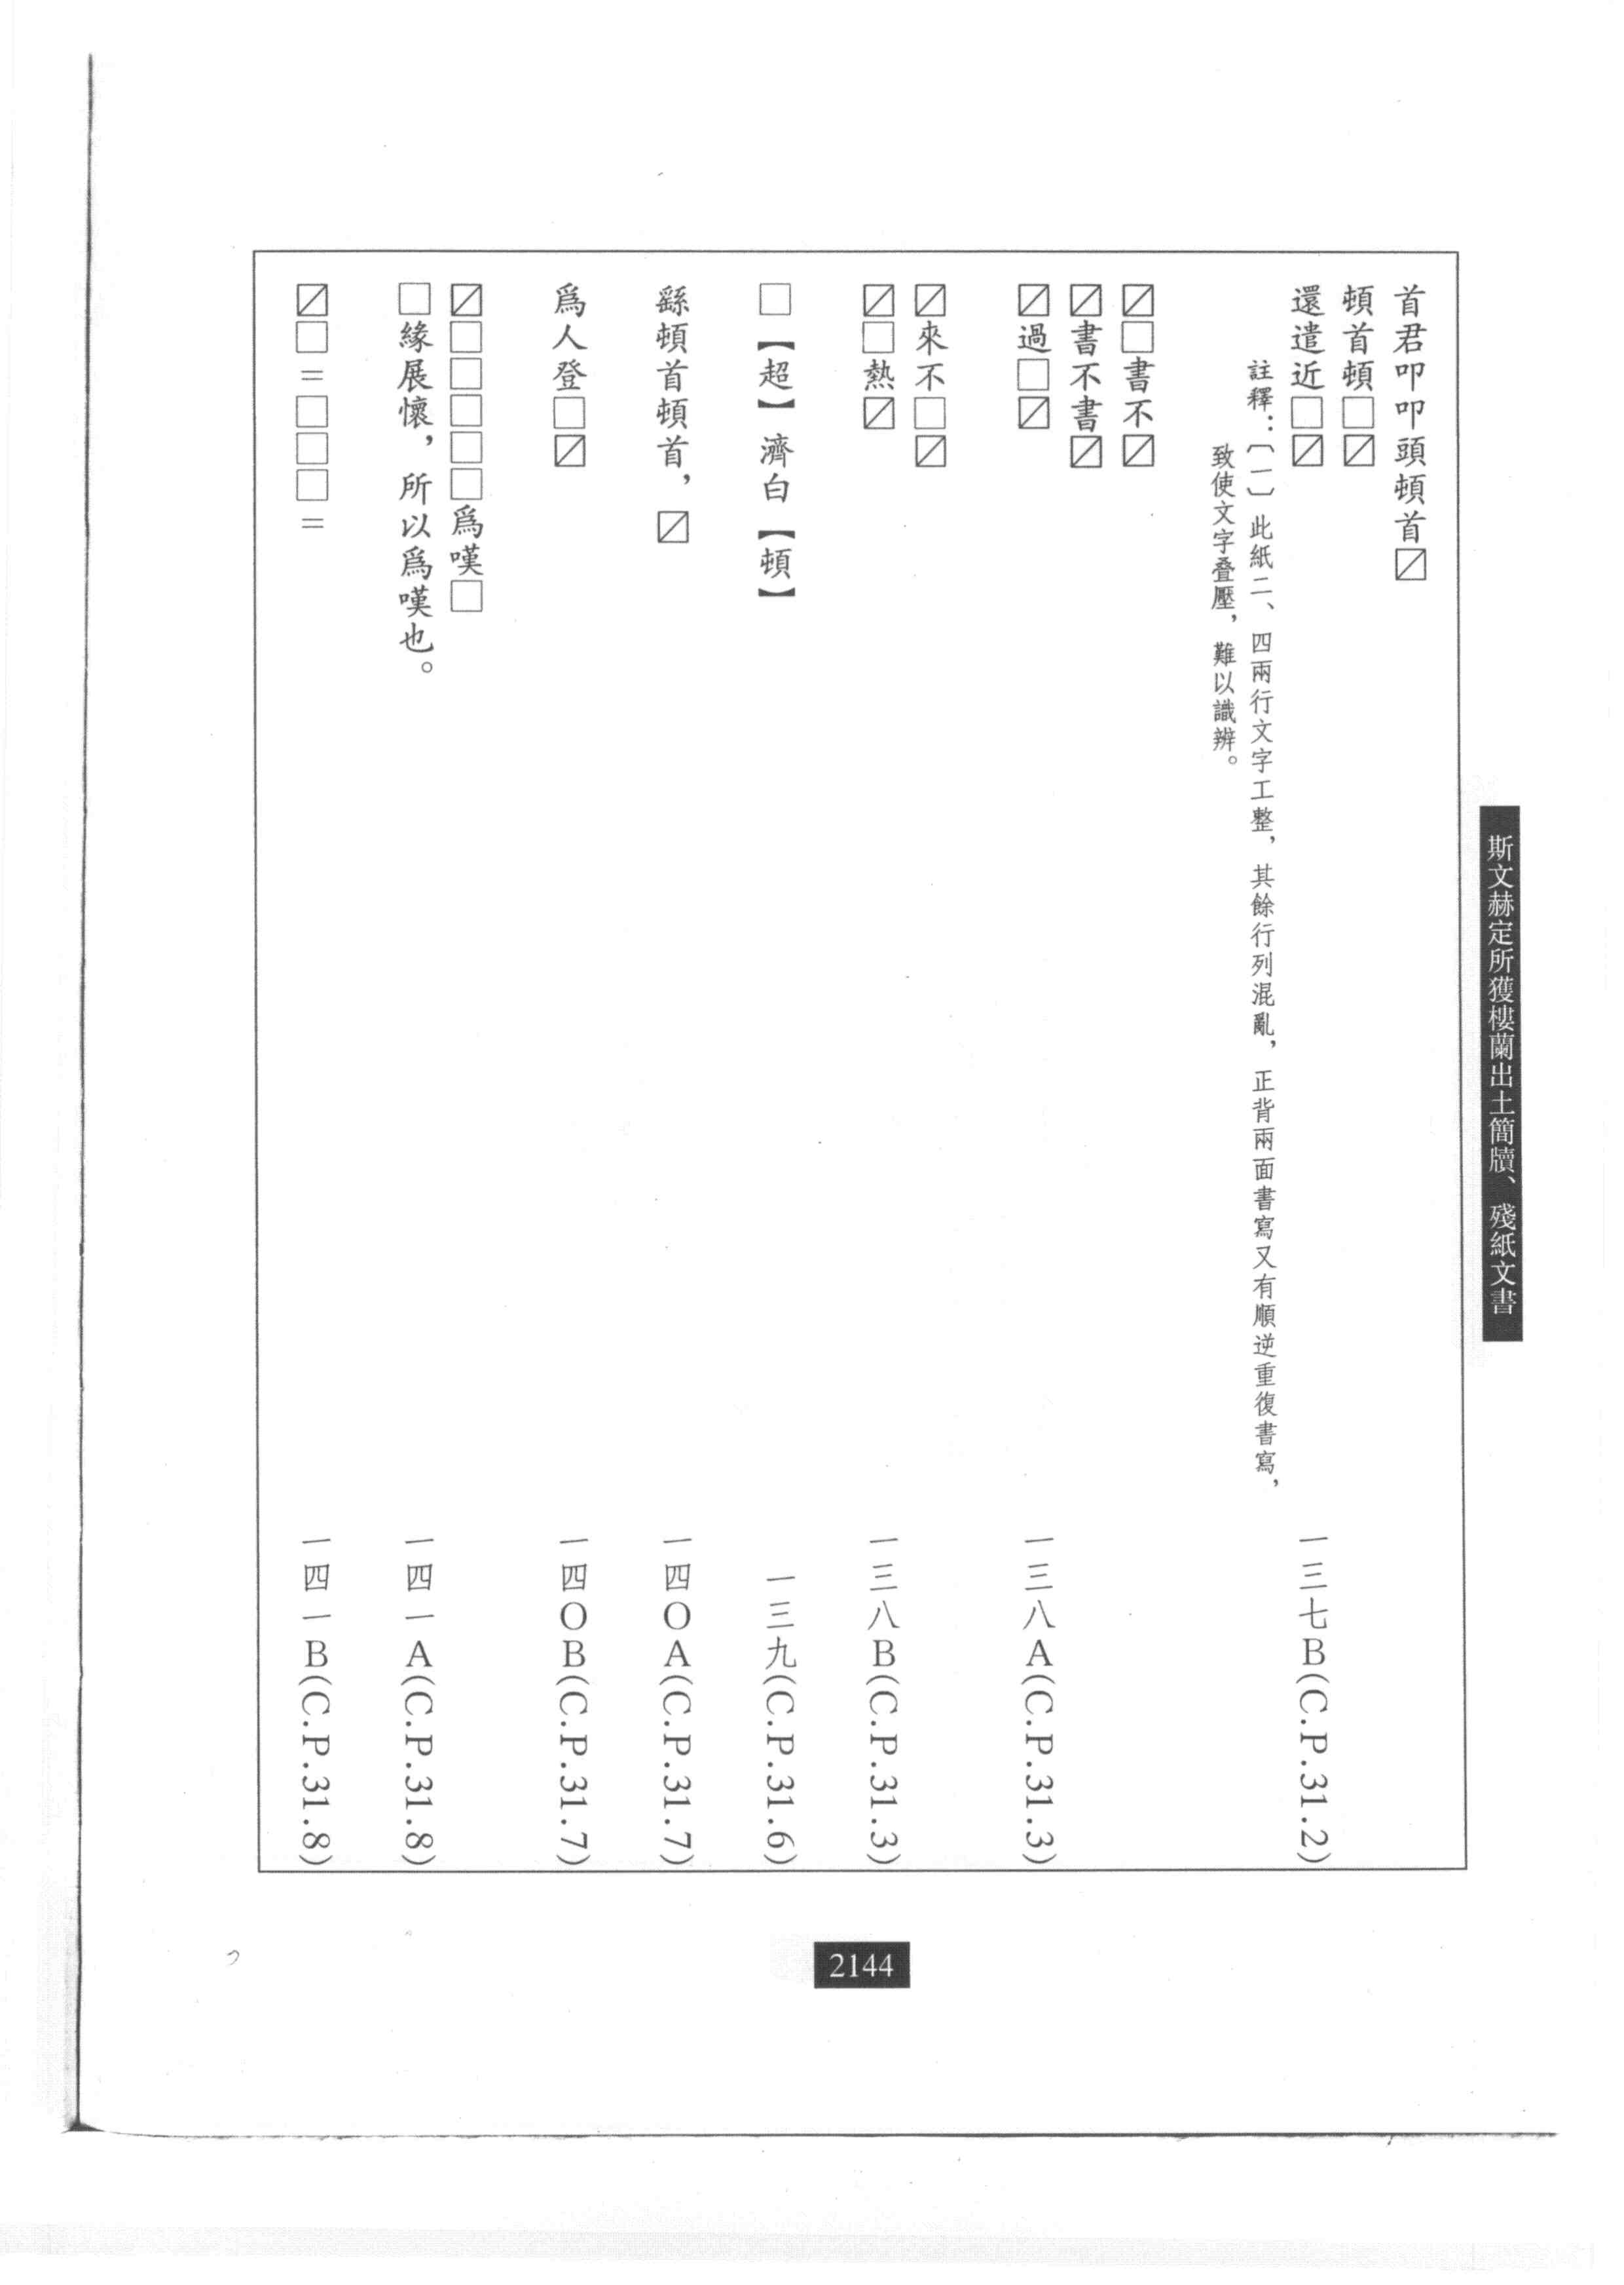 斯文赫定所獲樓蘭出土簡牘、殘紙文書
首君叩叩頭頓首☒
頓首頓□☒
還遣近□☒ 一三七B(C.P.31.2)
註釋：〔一〕此紙二、四兩行文字工整，其餘行列混亂，正背兩面書寫又有順逆重復書寫，
致使文字叠壓，難以識辨。
☒□書不☒
☒書不書☒
☒過□☒ 一三八A(C.P.31.3)
☒來不□☒
☒□熱☒ 一三八B(C.P.31.3)
□【超】濟白【頓】 一三九(C.P.31.6)
繇頓首頓首，☒ 一四〇A(C.P.31.7)
爲人登□☒ 一四〇B(C.P.31.7)
☒□□□□□爲嘆□
□緣展懷，所以爲嘆也。 一四一A(C.P.31.8)
☒□＝□□□＝ 一四一B(C.P.31.8)
2144